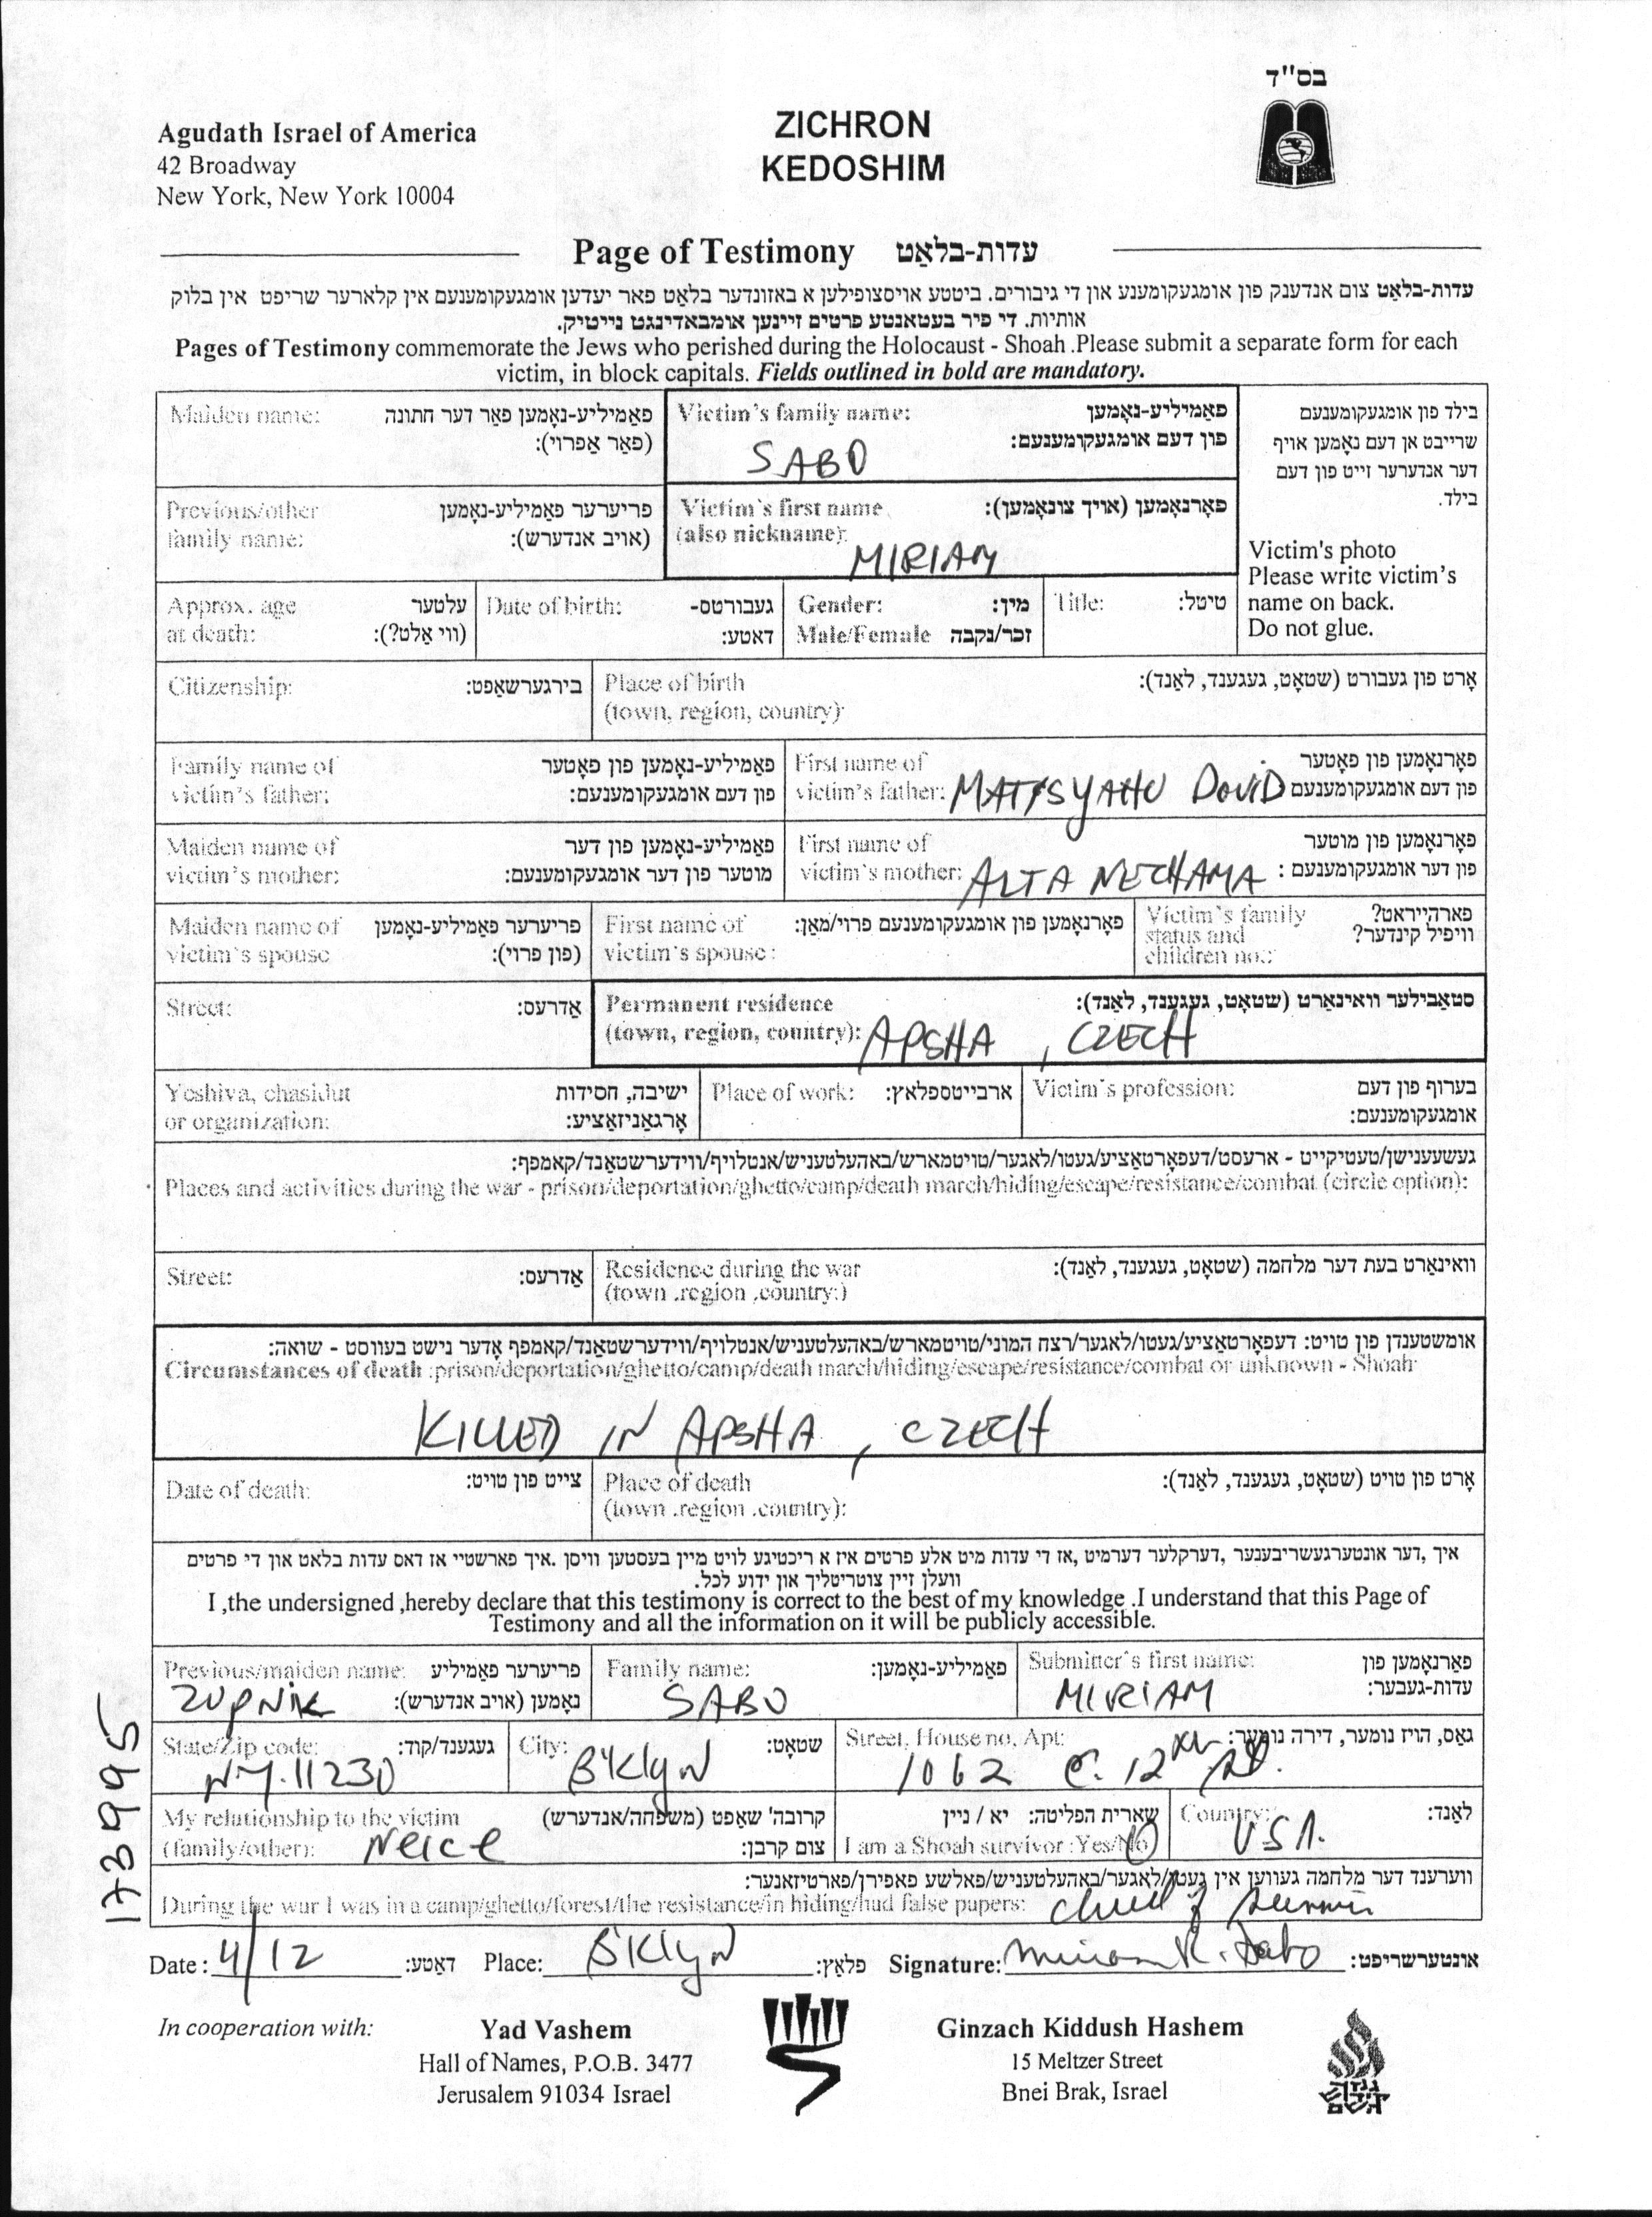 בס"ד
Agudath Israel of America
42 Broadway
New York, New York 10004
ZICHRON
KEDOSHIM
Page of Testimony עדות-בלאַט
עדות-בלאַט צום אנדענק פון אומגעקומענע און די גיבורים. ביטטע אויסצופילען א באזונדער בלאַט פאר יעדען אומגעקומענעם אין קלארער שריפט אין בלוק
אותיות. די פיר בעטאנטע פרטים זיינען אומבאדינגט נייטיק.
Pages of Testimony commemorate the Jews who perished during the Holocaust - Shoah .Please submit a separate form for each
victim, in block capitals. Fields outlined in bold are mandatory.
Maiden name: פאַמיליע-נאָמען פאַר דער חתונה
(פאַר אַפרוי):
Victim's family name: פאַמיליע-נאָמען
פון דעם אומגעקומענעם:
SABO
בילד פון אומגעקומענעם
שרייבט אן דעם נאָמען אויף
דער אנדערער זייט פון דעם
בילד.
Previous/other פריערער פאַמיליע-נאָמען
family name: (אויב אנדערש):
Victim's first name פאָרנאָמען (אויך צונאָמען):
(also nickname):
MIRIAM
Victim's photo
Please write victim's
name on back.
Do not glue.
Approx. age עלטער
at death: (ווי אַלט?):
Date of birth: געבורטס-
דאטע:
Gender: מין:
Male/Female זכר/נקבה
Title: טיטל:
Citizenship: בירגערשאַפט:
Place of birth אָרט פון געבורט (שטאָט, געגענד, לאַנד):
(town, region, country):
Family name of פאַמיליע-נאָמען פון פאָטער
victim's father: פון דעם אומגעקומענעם:
First name of פאָרנאָמען פון פאָטער
victim's father: MATISYAHU DOVID פון דעם אומגעקומענעם:
Maiden name of פאַמיליע-נאָמען פון דער
victim's mother: מוטער פון דער אומגעקומענעם:
First name of פאָרנאָמען פון מוטער
victim's mother: ALTA NECHAMA פון דער אומגעקומענעם :
Maiden name of פריערער פאַמיליע-נאָמען
victim's spouse (פון פרוי):
First name of פאָרנאָמען פון אומגעקומענעם פרוי/מאַן:
victim's spouse :
Victim's family פארהייראט?
status and וויפיל קינדער?
children no.:
Street: אַדרעס:
Permanent residence סטאַבילער וואינאָרט (שטאָט, געגענד, לאַנד):
(town, region, country): APSHA , CZECH
Yeshiva, chasidut ישיבה, חסידות
or organization: אָרגאַניזאַציע:
Place of work: ארבייטספלאץ:
Victim's profession: בערוף פון דעם
אומגעקומענעם:
געשעענישן/טעטיקייט - ארעסט/דעפאָרטאַציע/געטו/לאגער/טויטמארש/באהעלטעניש/אנטלויף/ווידערשטאַנד/קאמפף:
Places and activities during the war - prison/deportation/ghetto/camp/death march/hiding/escape/resistance/combat (circle option):
Street: אַדרעס:
Residence during the war וואינאָרט בעת דער מלחמה (שטאָט, געגענד, לאַנד):
(town .region ,country:)
אומשטענדן פון טויט: דעפאָרטאַציע/געטו/לאגער/רצח המוני/טויטמארש/באהעלטעניש/אנטלויף/ווידערשטאַנד/קאמפף אָדער נישט בעווסט - שואה:
Circumstances of death :prison/deportation/ghetto/camp/death march/hiding/escape/resistance/combat or unknown - Shoah
KILLED IN APSHA , CZECH
Date of death: צייט פון טויט:
Place of death אָרט פון טויט (שטאָט, געגענד, לאַנד):
(town .region .country):
איך ,דער אונטערגעשריבענער ,דערקלער דערמיט ,אז די עדות מיט אלע פרטים איז א ריכטיגע לויט מיין בעסטען וויסן .איך פארשטיי אז דאס עדות בלאט און די פרטים
וועלן זיין צוטריטליך און ידוע לכל.
I ,the undersigned ,hereby declare that this testimony is correct to the best of my knowledge .I understand that this Page of
Testimony and all the information on it will be publicly accessible.
Previous/maiden name: פריערער פאַמיליע
ZUPNIK נאָמען (אויב אנדערש):
Family name: פאַמיליע-נאָמען:
SABO
Submitter's first name: פאָרנאָמען פון
MIRIAM עדות-געבער:
State/Zip code: געגענד/קוד:
NY. 11230
City: שטאָט:
B'KlyN
Street, House no, Apt: גאס, הויז נומער, דירה נומער:
1062 E. 12th St.
My relationship to the victim קרובה' שאפט (משפחה/אנדערש)
(family/other): Neice צום קרבן:
שארית הפליטה: יא / ניין
I am a Shoah survivor :Yes/No
Country: לאַנד:
USA.
ווערענד דער מלחמה געווען אין געטו/לאגער/באהעלטעניש/פאלשע פאפירן/פארטיזאנער:
During the war I was in a camp/ghetto/forest/the resistance/in hiding/had false papers: child of
Date : 4/12 דאַטע: Place: B'KlyN פלאַץ: Signature: Miriam R. Sabo אונטערשריפט:
173995
In cooperation with:
Yad Vashem
Hall of Names, P.O.B. 3477
Jerusalem 91034 Israel
Ginzach Kiddush Hashem
15 Meltzer Street
Bnei Brak, Israel
גנזך
קידוש
השם